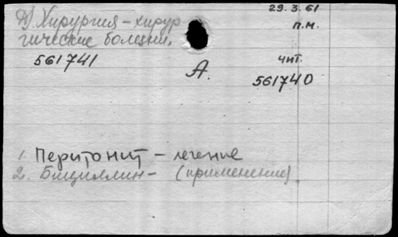 29.3.61
Д) Хирургия - хирур
п.м.
гические болезни.
561741
чит.
А.
561740
1. Перитонит - лечение
2. Бициллин - (применение)